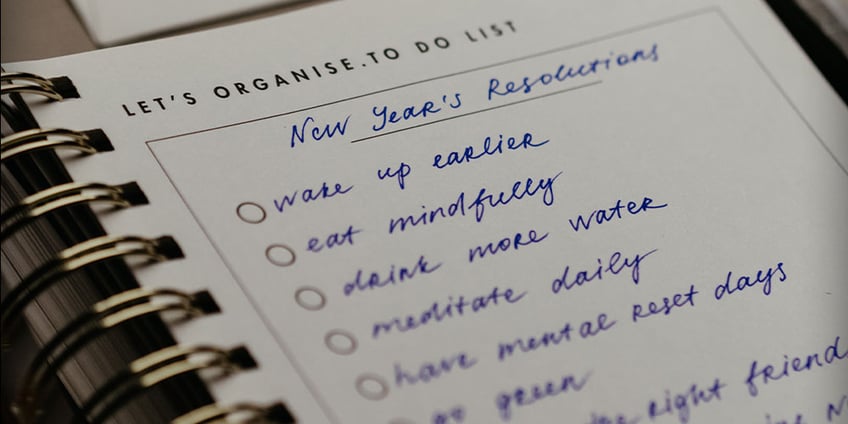 LET'S ORGANISE.TO DO LIST
New Year's Resolutions
wake up earlier
eat mindfully
drink more water
meditate daily
have mental reset days
go green
the right friend